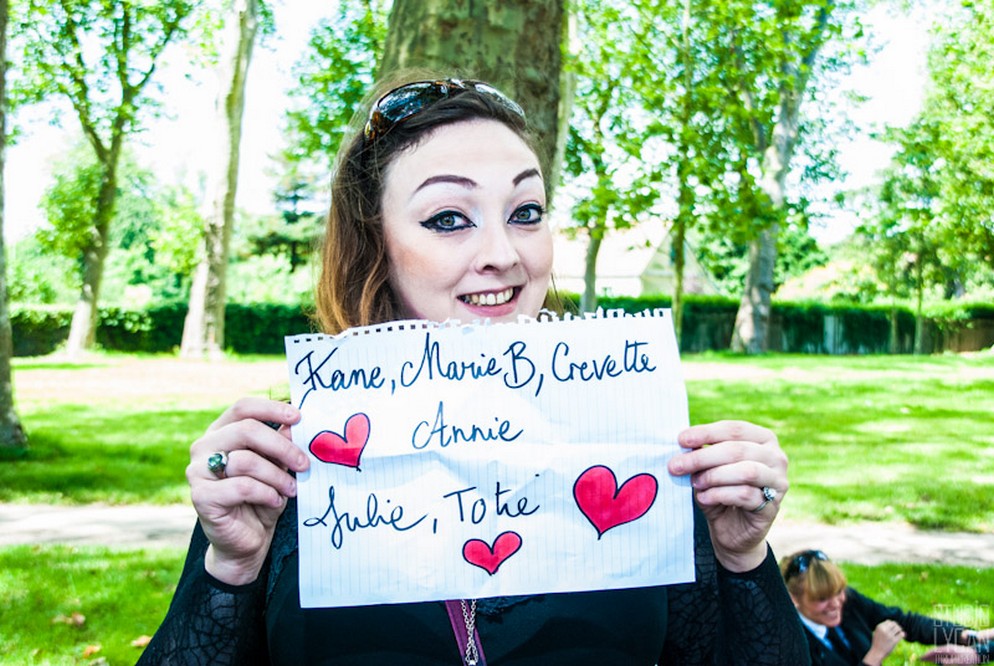 Kane, Marie B, Crevette
Annie
Julie, Totie
STUDIO
LYCAN